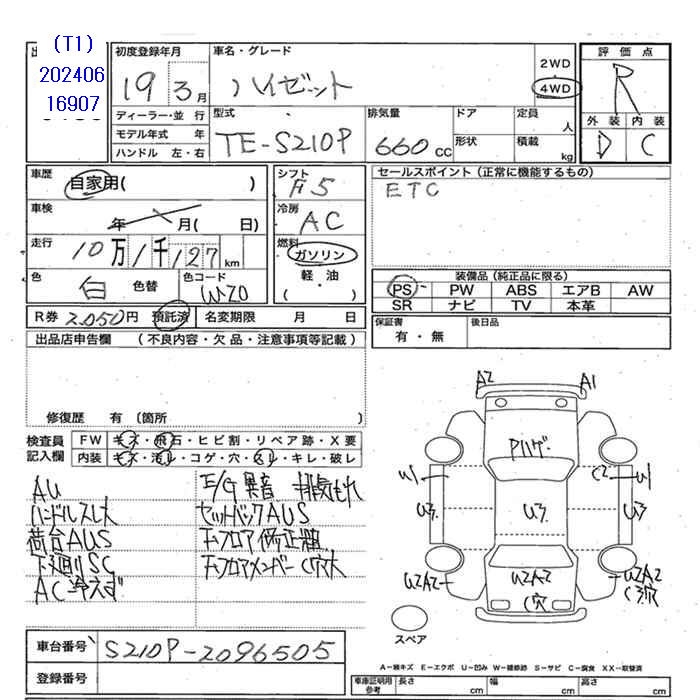 (T1)
202406
16907
出
初度登録年月
19 3月
車名・グレード
ハイゼット
2WD
4WD
評価点
R
外装 内装
D C
ディーラー・並 行
モデル年式 年
ハンドル 左・右
型式
TE-S210P
排気量
660 cc
ドア
形状
定員
人
積載
kg
車歴
自家用( )
車検
年 月( 日)
走行
10万1千127km
色
白 色替
色コード
W20
シフト
F5
冷房
AC
燃料
ガソリン
軽・油
( )
セールスポイント(正常に機能するもの)
ETC
装備品(純正品に限る)
PS PW ABS エアB AW
SR ナビ TV 本革
R券 2,050円 預託済 名変期限 月 日
保証書
有・無
後日品
出品店申告欄 (不良内容・欠品・注意事項等記載)
修復歴 有 〔箇所 〕
検査員
記入欄
FW キズ・飛石・ヒビ割・リペア跡・X要
内装 キズ・汚レ・コゲ・穴・スレ・キレ・破レ
AU
ハンドルスレ大
荷台AUS
下廻りSC
AC冷えず
E/G異音 排気もれ
セットバックAUS
下フロアメンバーC穴大
A2 A1
Pハゲ
U1 C2 U1
U3 U3 U3
U2A2 U2A2 U2A2
C穴 C穴
スペア
車台番号 S210P-2096505
登録番号
A-線キズ E-エクボ U-凹み W-補修跡 S-サビ C-腐食 XX-取替済
車庫証明用
参考
長さ cm 幅 cm 高さ cm